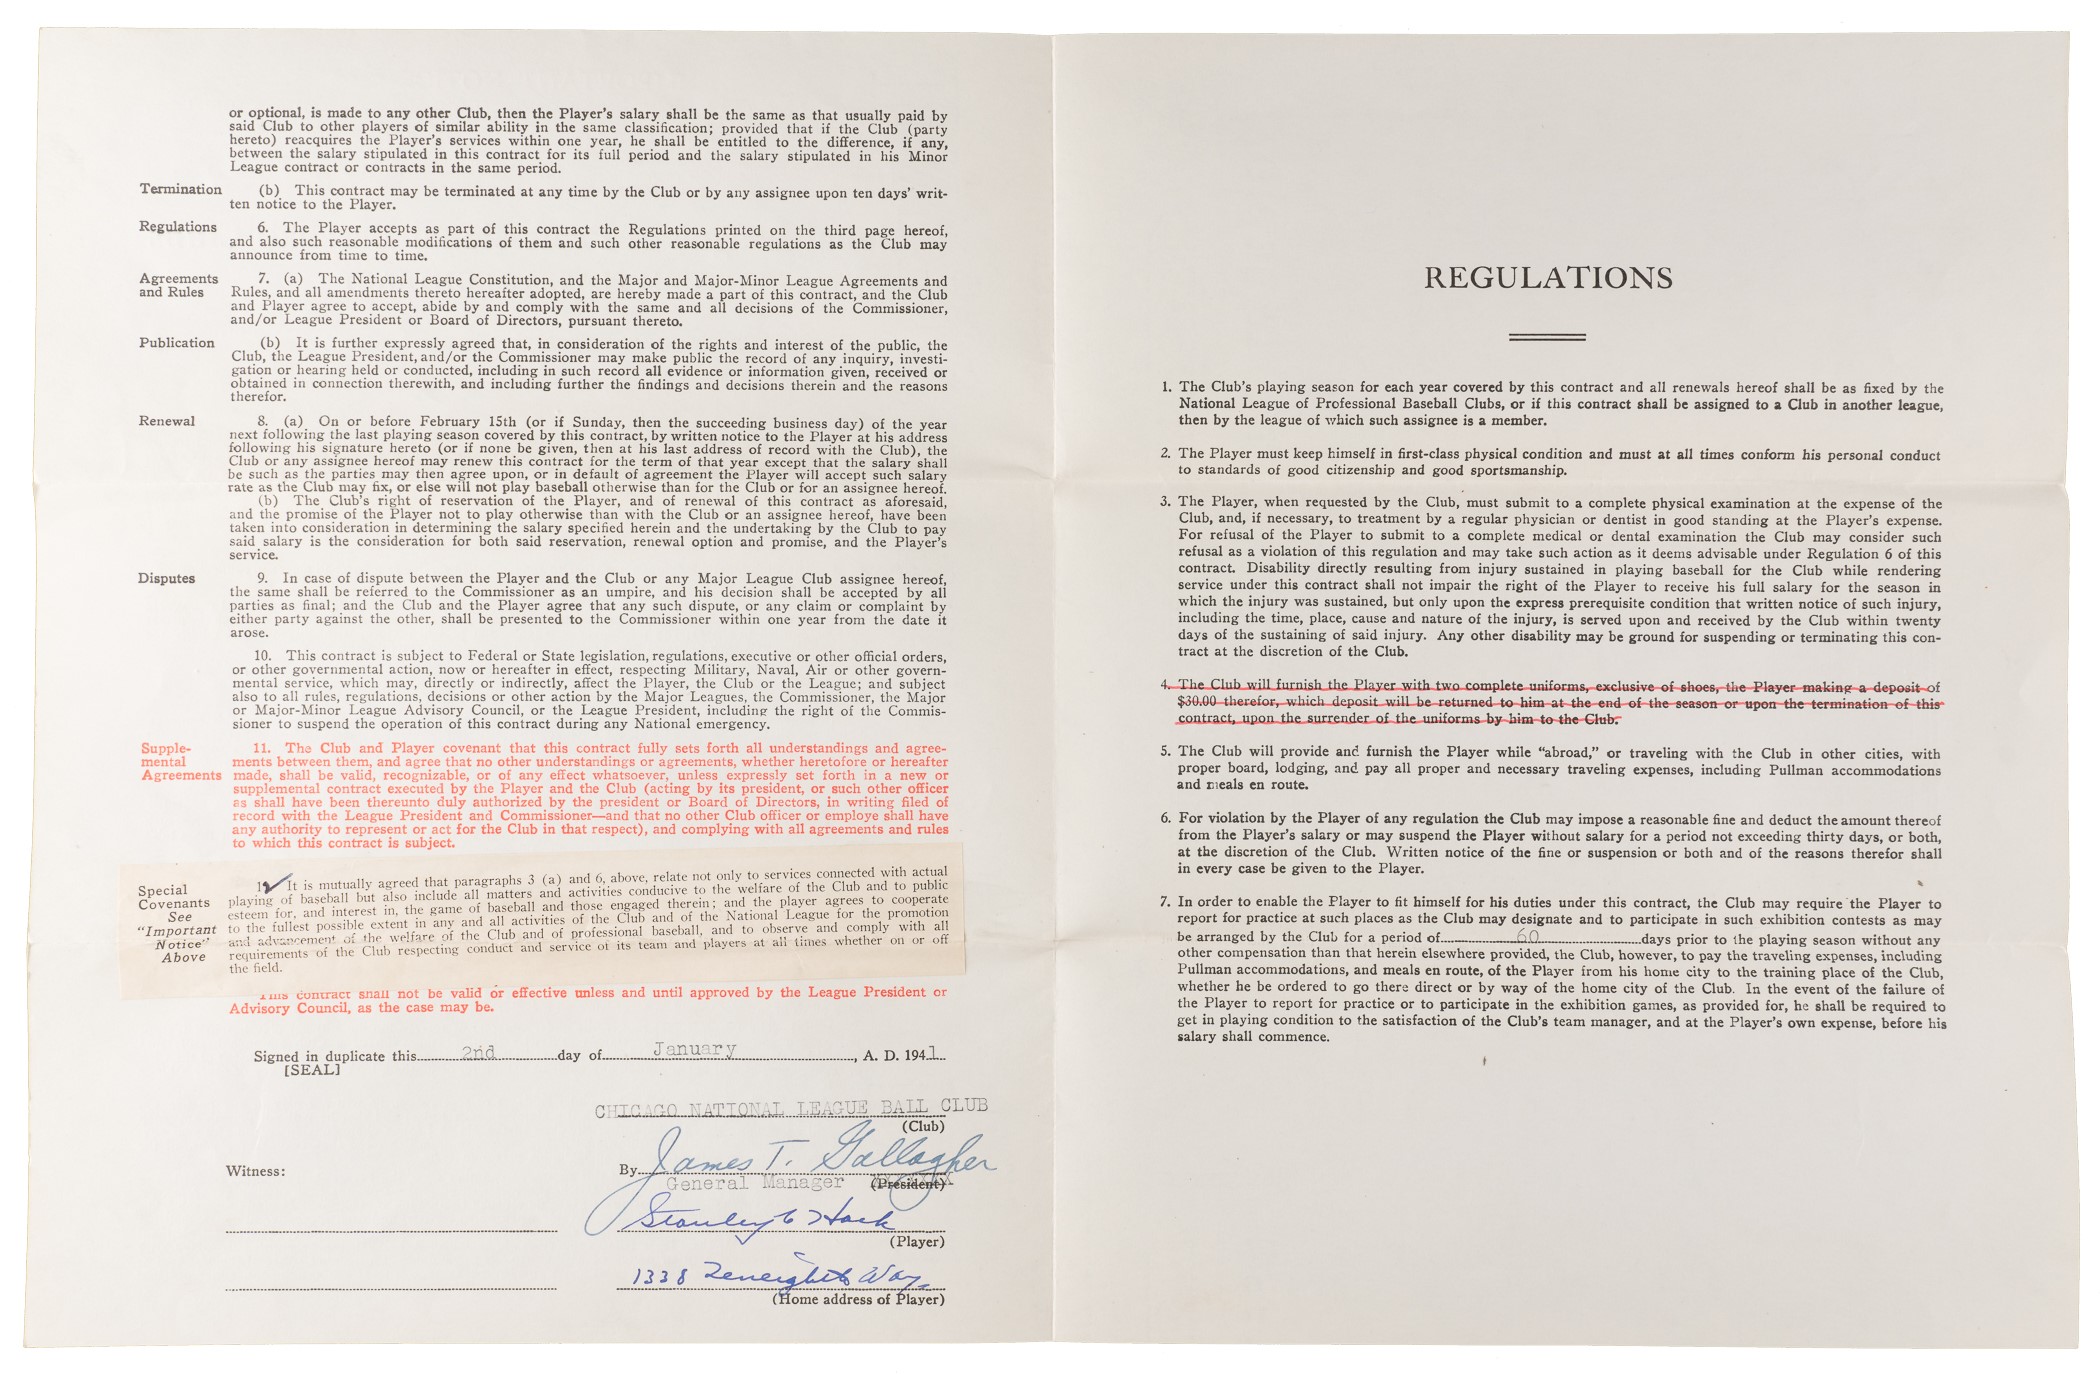 or optional, is made to any other Club, then the Player's salary shall be the same as that usually paid by
said Club to other players of similar ability in the same classification; provided that if the Club (party
hereto) reacquires the Player's services within one year, he shall be entitled to the difference, if any,
between the salary stipulated in this contract for its full period and the salary stipulated in his Minor
League contract or contracts in the same period.
Termination (b) This contract may be terminated at any time by the Club or by any assignee upon ten days' writ-
ten notice to the Player.
Regulations 6. The Player accepts as part of this contract the Regulations printed on the third page hereof,
and also such reasonable modifications of them and such other reasonable regulations as the Club may
announce from time to time.
Agreements 7. (a) The National League Constitution, and the Major and Major-Minor League Agreements and
and Rules Rules, and all amendments thereto hereafter adopted, are hereby made a part of this contract, and the Club
and Player agree to accept, abide by and comply with the same and all decisions of the Commissioner,
and/or League President or Board of Directors, pursuant thereto.
Publication (b) It is further expressly agreed that, in consideration of the rights and interest of the public, the
Club, the League President, and/or the Commissioner may make public the record of any inquiry, investi-
gation or hearing held or conducted, including in such record all evidence or information given, received or
obtained in connection therewith, and including further the findings and decisions therein and the reasons
therefor.
Renewal 8. (a) On or before February 15th (or if Sunday, then the succeeding business day) of the year
next following the last playing season covered by this contract, by written notice to the Player at his address
following his signature hereto (or if none be given, then at his last address of record with the Club), the
Club or any assignee hereof may renew this contract for the term of that year except that the salary shall
be such as the parties may then agree upon, or in default of agreement the Player will accept such salary
rate as the Club may fix, or else will not play baseball otherwise than for the Club or for an assignee hereof.
(b) The Club's right of reservation of the Player, and of renewal of this contract as aforesaid,
and the promise of the Player not to play otherwise than with the Club or an assignee hereof, have been
taken into consideration in determining the salary specified herein and the undertaking by the Club to pay
said salary is the consideration for both said reservation, renewal option and promise, and the Player's
service.
Disputes 9. In case of dispute between the Player and the Club or any Major League Club assignee hereof,
the same shall be referred to the Commissioner as an umpire, and his decision shall be accepted by all
parties as final; and the Club and the Player agree that any such dispute, or any claim or complaint by
either party against the other, shall be presented to the Commissioner within one year from the date it
arose.
10. This contract is subject to Federal or State legislation, regulations, executive or other official orders,
or other governmental action, now or hereafter in effect, respecting Military, Naval, Air or other govern-
mental service, which may, directly or indirectly, affect the Player, the Club or the League; and subject
also to all rules, regulations, decisions or other action by the Major Leagues, the Commissioner, the Major
or Major-Minor League Advisory Council, or the League President, including the right of the Commis-
sioner to suspend the operation of this contract during any National emergency.
Supple- 11. The Club and Player covenant that this contract fully sets forth all understandings and agree-
mental ments between them, and agree that no other understandings or agreements, whether heretofore or hereafter
Agreements made, shall be valid, recognizable, or of any effect whatsoever, unless expressly set forth in a new or
supplemental contract executed by the Player and the Club (acting by its president, or such other officer
as shall have been thereunto duly authorized by the president or Board of Directors, in writing filed of
record with the League President and Commissioner—and that no other Club officer or employe shall have
any authority to represent or act for the Club in that respect), and complying with all agreements and rules
to which this contract is subject.
Special It is mutually agreed that paragraphs 3 (a) and 6, above, relate not only to services connected with actual
Covenants playing of baseball but also include all matters and activities conducive to the welfare of the Club and to public
See esteem for, and interest in, the game of baseball and those engaged therein; and the player agrees to cooperate
"Important to the fullest possible extent in any and all activities of the Club and of the National League for the promotion
Notice" and advancement of the welfare of the Club and of professional baseball, and to observe and comply with all
Above requirements of the Club respecting conduct and service of its team and players at all times whether on or off
the field.
This contract shall not be valid or effective unless and until approved by the League President or
Advisory Council, as the case may be.
Signed in duplicate this 2nd day of January, A. D. 1941
[SEAL]
CHICAGO NATIONAL LEAGUE BALL CLUB
(Club)
Witness: By James T. Gallagher
General Manager (President)
Stanley C Hack
(Player)
1338 Way
(Home address of Player)
REGULATIONS
1. The Club's playing season for each year covered by this contract and all renewals hereof shall be as fixed by the
National League of Professional Baseball Clubs, or if this contract shall be assigned to a Club in another league,
then by the league of which such assignee is a member.
2. The Player must keep himself in first-class physical condition and must at all times conform his personal conduct
to standards of good citizenship and good sportsmanship.
3. The Player, when requested by the Club, must submit to a complete physical examination at the expense of the
Club, and, if necessary, to treatment by a regular physician or dentist in good standing at the Player's expense.
For refusal of the Player to submit to a complete medical or dental examination the Club may consider such
refusal as a violation of this regulation and may take such action as it deems advisable under Regulation 6 of this
contract. Disability directly resulting from injury sustained in playing baseball for the Club while rendering
service under this contract shall not impair the right of the Player to receive his full salary for the season in
which the injury was sustained, but only upon the express prerequisite condition that written notice of such injury,
including the time, place, cause and nature of the injury, is served upon and received by the Club within twenty
days of the sustaining of said injury. Any other disability may be ground for suspending or terminating this con-
tract at the discretion of the Club.
4. The Club will furnish the Player with two complete uniforms, exclusive of shoes, the Player making a deposit of
$30.00 therefor, which deposit will be returned to him at the end of the season or upon the termination of this
contract, upon the surrender of the uniforms by him to the Club.
5. The Club will provide and furnish the Player while "abroad," or traveling with the Club in other cities, with
proper board, lodging, and pay all proper and necessary traveling expenses, including Pullman accommodations
and meals en route.
6. For violation by the Player of any regulation the Club may impose a reasonable fine and deduct the amount thereof
from the Player's salary or may suspend the Player without salary for a period not exceeding thirty days, or both,
at the discretion of the Club. Written notice of the fine or suspension or both and of the reasons therefor shall
in every case be given to the Player.
7. In order to enable the Player to fit himself for his duties under this contract, the Club may require the Player to
report for practice at such places as the Club may designate and to participate in such exhibition contests as may
be arranged by the Club for a period of 60 days prior to the playing season without any
other compensation than that herein elsewhere provided, the Club, however, to pay the traveling expenses, including
Pullman accommodations, and meals en route, of the Player from his home city to the training place of the Club,
whether he be ordered to go there direct or by way of the home city of the Club. In the event of the failure of
the Player to report for practice or to participate in the exhibition games, as provided for, he shall be required to
get in playing condition to the satisfaction of the Club's team manager, and at the Player's own expense, before his
salary shall commence.